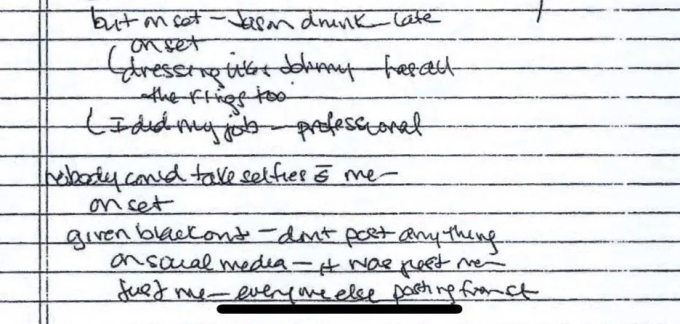 but on set - Jason drunk - late
on set
(dressing like Johnny - has all
the rings too
(I did my job - professional
nobody could take selfies c̄ me -
on set
given blackout - dont post anything
on social media - it was just me -
just me - everyone else posting from set